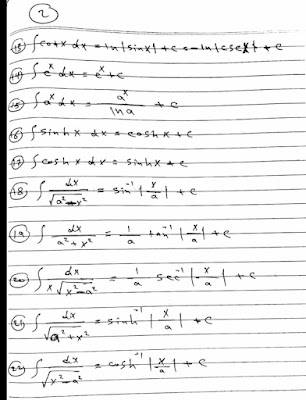 2
13 ∫cotx dx = ln|sinx| + c = -ln|cscx| + c
14 ∫e^x dx = e^x + c
15 ∫a^x dx = a^x/ln a + c
16 ∫sinhx dx = coshx + c
17 ∫coshx dx = sinhx + c
18 ∫dx/√(a²-x²) = sin⁻¹|x/a| + c
19 ∫dx/(a²+x²) = 1/a tan⁻¹|x/a| + c
20 ∫dx/(x√(x²-a²)) = 1/a sec⁻¹|x/a| + c
21 ∫dx/√(a²+x²) = sinh⁻¹|x/a| + c
22 ∫dx/√(x²-a²) = cosh⁻¹|x/a| + c